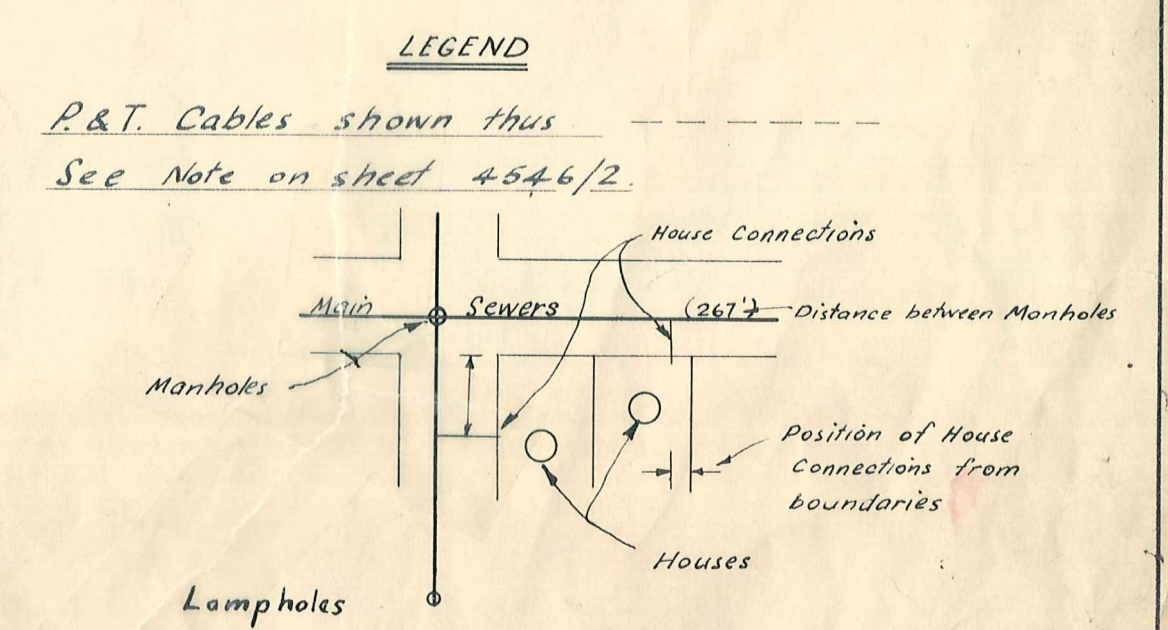 LEGEND
P.&T. Cables shown thus
See Note on sheet 4546/2.
House Connections
Main Sewers (267') Distance between Manholes
Manholes
Position of House
Connections from
boundaries
Houses
Lampholes